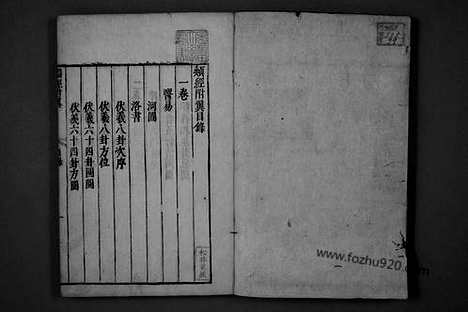 類經附翼目錄
一卷
醫易
河圖
洛書
伏羲八卦次序
伏羲八卦方位
伏羲六十四卦圓圖
伏羲六十四卦方圖
www.fozhu920.com